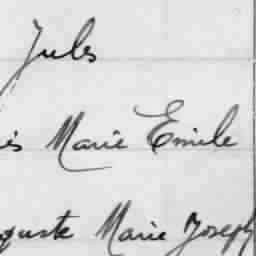 Jules
is Marie Emile
guste Marie Joseph